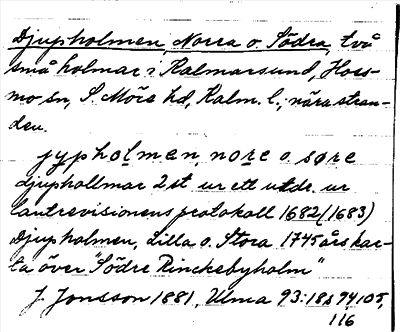 Djupholmen, Norra o. Södra, två
små holmar i Kalmarsund, Hoss-
mo sn, S. Möre hd, Kalm. l., nära stran-
den.
jypholmen, nore o. søre
djuphollmar 2 st ur ett utdr. ur
lantrevisionens protokoll 1682(1683)
Djupholmen, Lilla o. Stora 1745 års kar-
ta över "Södre Rinckebyholm"
J. Jonsson 1881, Ulma 93:18 s 94, 105,
116